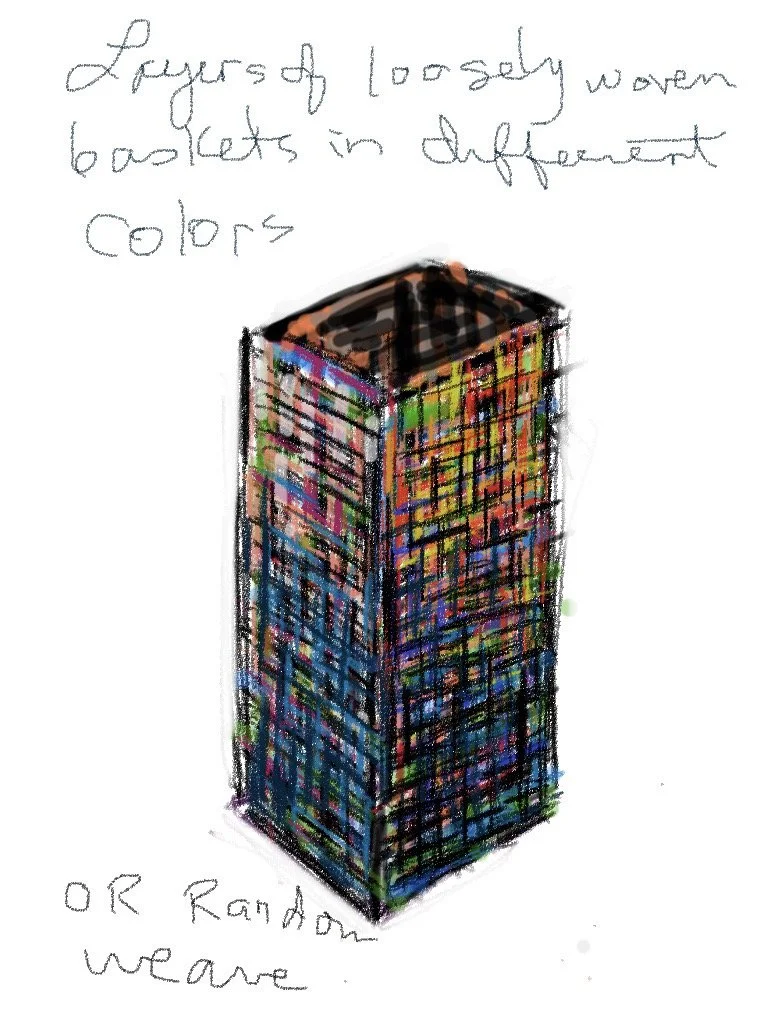 Layers of loosely woven
baskets in different
Colors
OR Random
weave